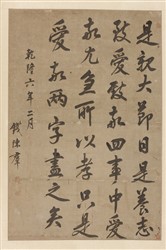 是親大節目是養志
致愛致敬四事中愛
敬尤急所以孝只是
愛敬兩字盡之矣
乾隆六年二月
錢陳羣